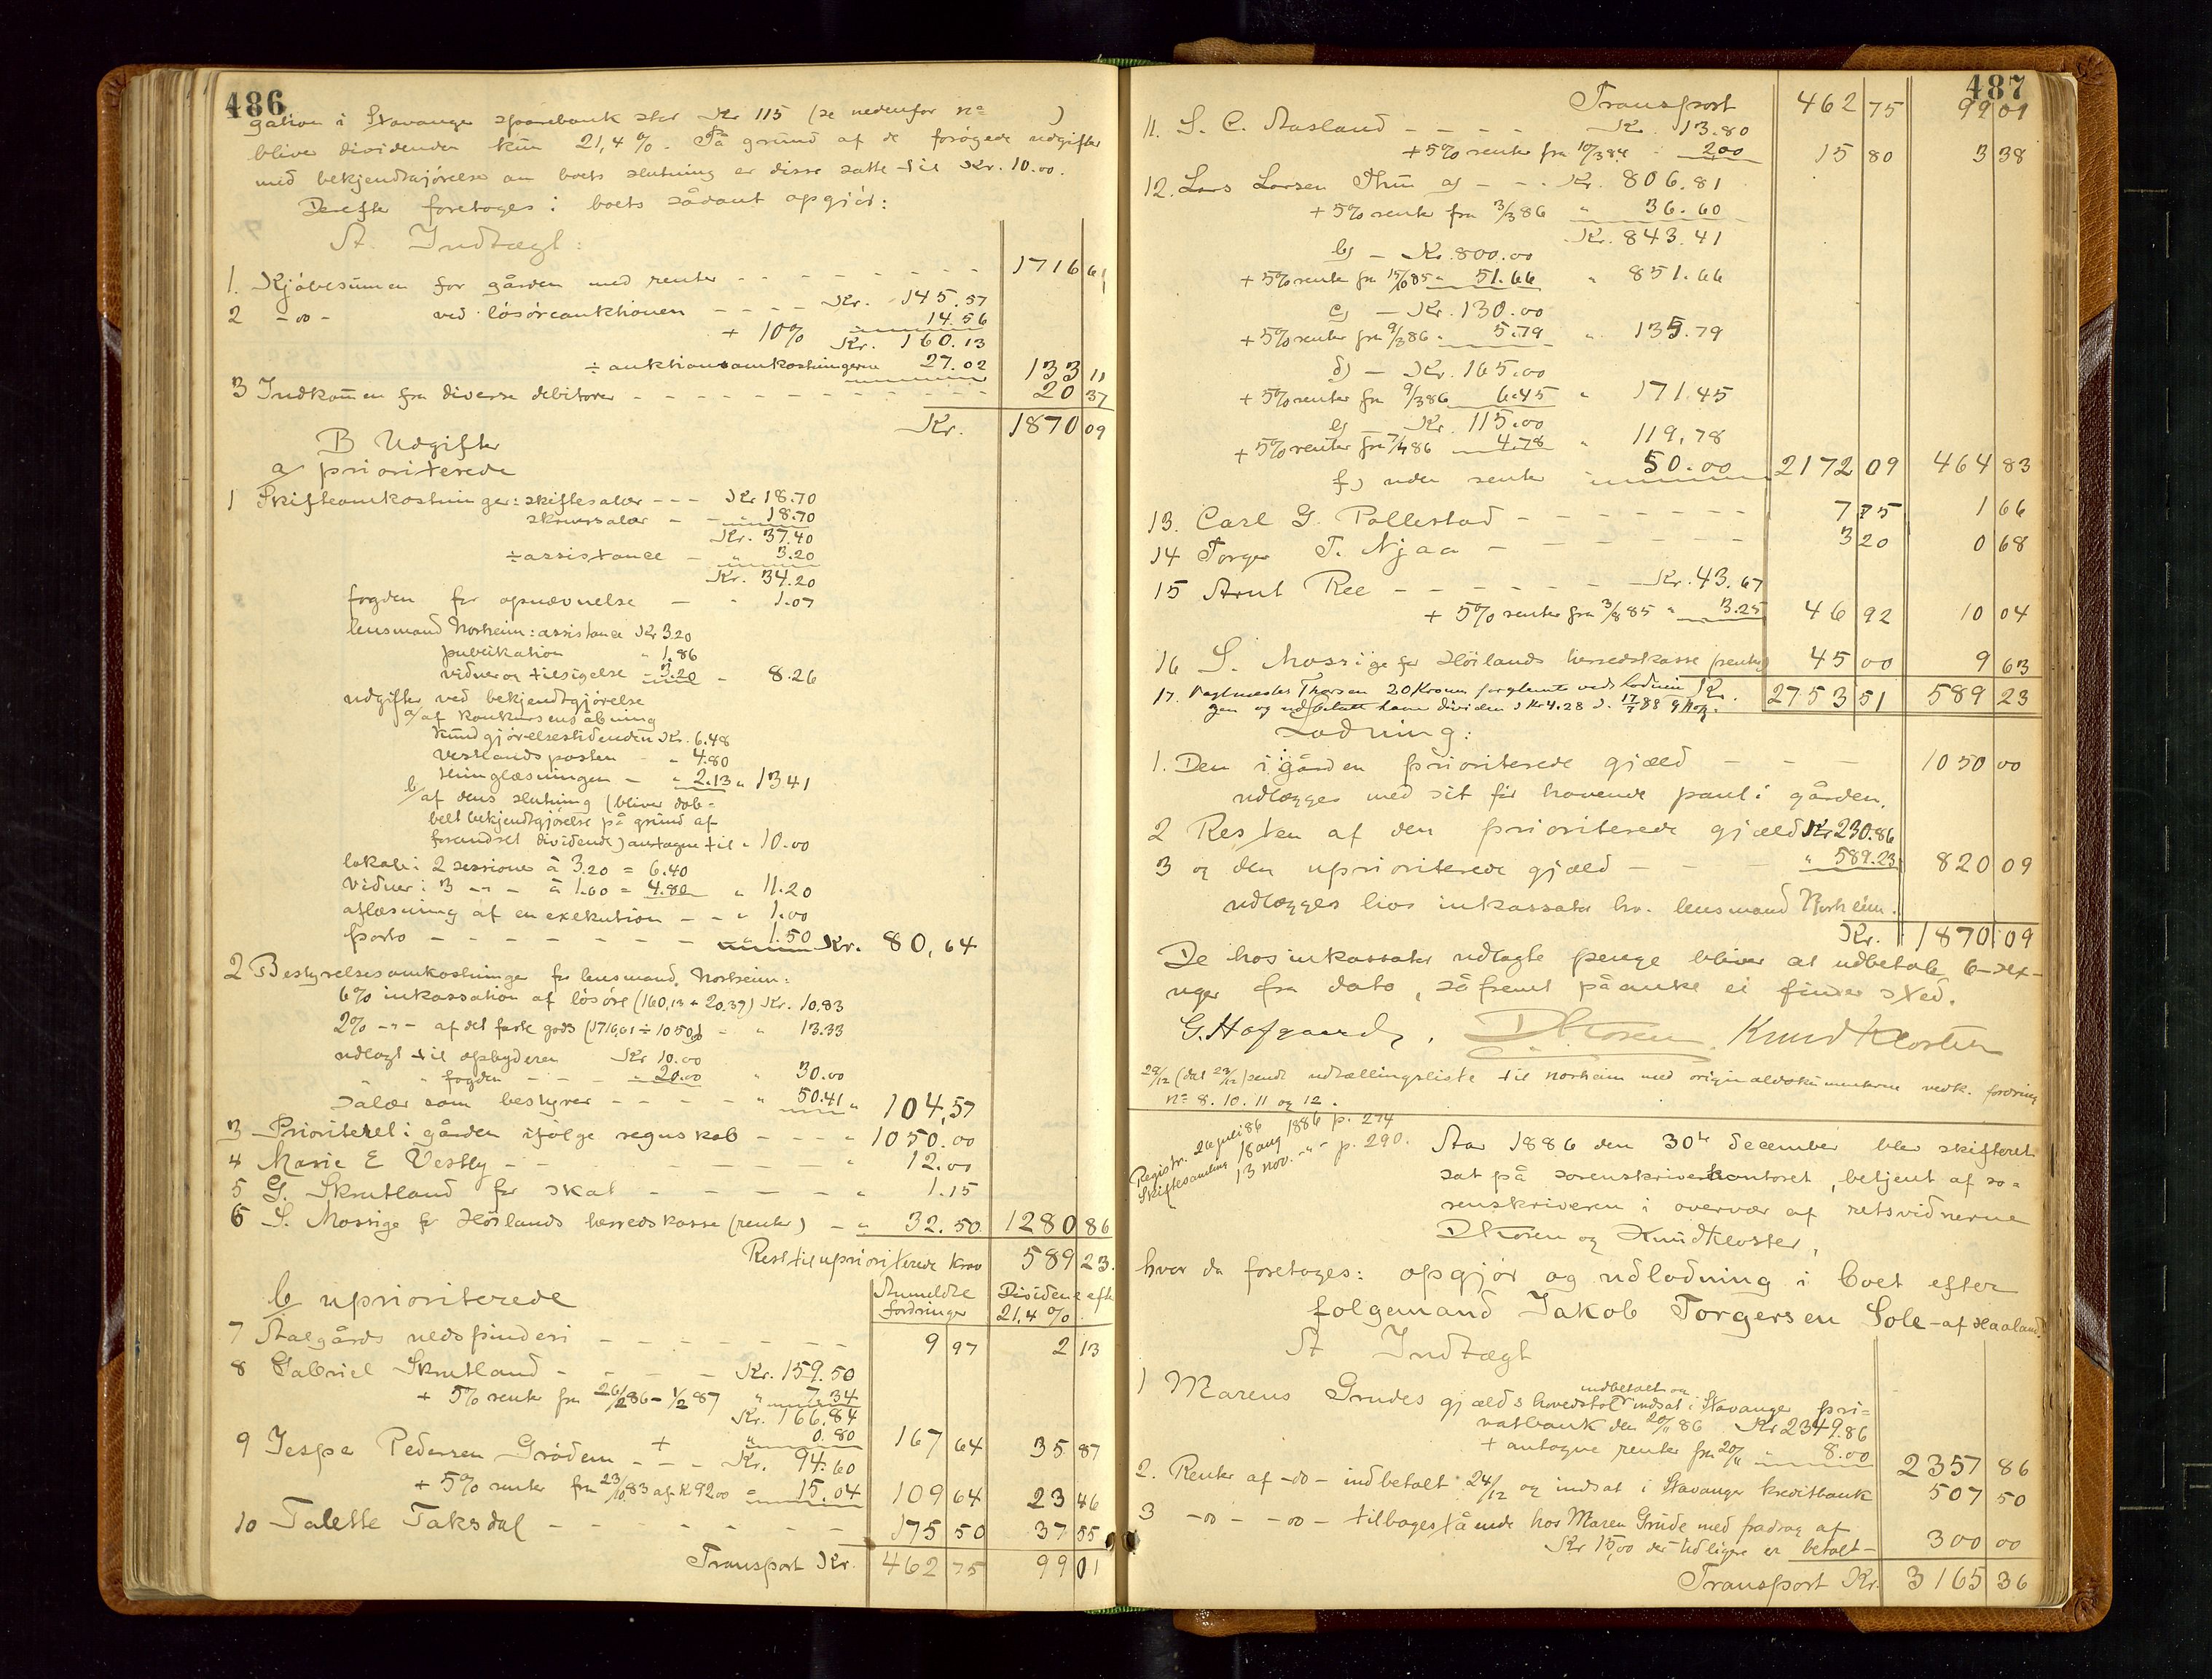 486
gation i Stavanger sparebank stor Kr 115 (se nedenfor nº )
bliver dividenden kun 21,4 %. På grund af de forögede udgifter
med bekjendtgjörelse om boets slutning er disse satte til Kr. 10.00.
Derefter foretoges i boets sådant opgjör:
A. Indtægt:
1. Kjöbesummen for gården med renter - - - 1716 61
2 -"- ved lösöreauktionen - - - Kr. 145.57
+ 10% 14.56
Kr. 160.13
÷ auktionsomkostningerne 27.02 133 11
3 Indkommen fra diverse debitorer - - - 20 37
Kr. 1870 09
B Udgifter
a/ prioriterede
1 Skifteomkostninger: skiftesalær - - - Kr 18.70
skriversalær - - 18.70
Kr. 37.40
÷ assistance - " 3.20
Kr. 34.20
fogden for opnævnelse - " 1.07
lensmand Norheim: assistance Kr 3.20
publikation " 1.86
vidner og tilsigelse - 3.20 - 8.26
udgifter ved bekjendtgjörelse
a/ af konkursens åbning
Kundgjörelsestidenden Kr. 6.48
Vestlandsposten - " 4.80
thinglæsningen - " 2.13 " 13.41
b/ af dens slutning (bliver dob=
belt bekjendtgjörelse på grund af
forandret dividende) antagne til " 10.00
lokale i 2 sessioner à 3.20 = 6.40
vidner i 3 -"- à 1.60 = 4.80 " 11.20
aflæsning af en exekution - - " 1.00
porto - - - 1.50 Kr. 80,64
2 Bestyrelsesomkostninger for lensmand Norheim:
6% inkassation af lösöre (160,13 + 20.37) Kr. 10.83
2% -"- af det faste gods (1716,61 ÷ 1050,) - " 13.33
udlagt til opbyderen Kr 10.00
" fogden - - - " 20.00 " 30.00
Salær som bestyrer - - - " 50.41 " 104,57
3 Prioriteret i gården ifölge regnskab - - - " 1050.00
4 Marie E Vestly - - - " 12.00
5 G. Skrutland for skat - - - " 1.15
6 S. Mossige for Höilands herredskasse (renter) - " 32.50 1280 86
Rest til uprioriterede krav 589 23.
b/ uprioriterede Anmeldte fordringer Dividene efter 21,4 %
7 Aalgårds uldspinderi - - - 9 97 2 13
8 Gabriel Skrutland - - - Kr. 159.50
+ 5% rente fra 26/2 86 - 1/2 87 " 7.34
Kr. 166.84
+ " 0.80 167 64 35 87
9 Jesper Pedersen Grödem - - - Kr. 94.60
+ 5% renter fra 23/10 83 af K 92.00 " 15.04 109 64 23 46
10 Talette Taksdal - - - 175 50 37 55
Transport Kr. 462 75 99 01
487
Transport 462 75 99 01
11. S. C. Aasland - - - Kr. 13.80
+ 5% renter fra 10/3 84 - 2.00 15 80 3 38
12. Lars Larsen Thu a) - - . Kr. 806.81
+ 5% rente fra 3/3 86 " 36.60
Kr. 843.41
b) - Kr. 800.00
+ 5% rente fra 15/10 85 " 51.66 " 851.66
c) - Kr. 130.00
+ 5% renter fra 9/3 86 " 5.79 " 135.79
d) - Kr. 165.00
+ 5% renter fra 9/3 86 6.45 " 171.45
e) Kr. 115.00
+ 5% renter fra 7/4 86 4.78 " 119,78
f) uden renter - 50.00 2172 09 464 83
13. Carl G. Pollestad - - - 7 75 1 66
14 Torger T. Njaa - - - 3 20 0 68
15 Arnt Ree - - - Kr. 43.67
+ 5% renter fra 3/8 85 " 3.25 46 92 10 04
16 S. Mossige for Höilands herredskasse (renter) 45 00 9 63
17. Vagtmester Thorsen 20 Kroner forglemt ved lodnin Kr. 2753 51 589 23
gen og udbetalt ham dividen d Kr 4.28 d. 17/7 88
Lodning:
1. Den i gården prioriterede gjæld - - - 1050 00
udlægges med sit för havende pant i gården.
2 Resten af den prioriterede gjæld Kr 230.86
3 og den uprioriterede gjæld - - - " 589.23 820 09
udlægges hos inkassator hr. lensmand Norheim.
Kr. 1870 09
De hos inkassator udlagte penge bliver at udbetale 6-sex-
uger fra dato, såfremt påanke ei finder sted.
G. Hofgaard, DKosen Knud Kloster
29/12 (dat 23/12) sendt udtællingsliste til Norheim med originaldokumenterne vedk. fordring
nº 8. 10. 11 og 12.
Registr. 26 juli 86
Skiftesamling 18 aug 1886 p. 274
13 nov. -"- p. 290.
Aar 1886 den 30te december blev skifteret
sat på sorenskriverkontoret, betjent af so=
renskriveren i overvær af retsvidnerne
DKosen og Knud Kloster,
hvor da foretoges: opgjör og udlodning i boet efter
folgemand Jakob Torgersen Sole - af Haaland.
A Indtægt
1 Marens Grudes gjælds hovedstol indbetalt og indsat i Stavanger pri=
vatbank den 20/11 86 Kr 2349.86
+ antagne renter fra 20/11 " 8.00 2357 86
2. Renter af -"- indbetalt 24/12 og indsat i Stavanger kreditbank 507 50
3 -"- -"- tilbagestående hos Maren Grude med fradrag af
Kr 15,00 der tidligere er betalt - 300 00
Transport Kr. 3165 36